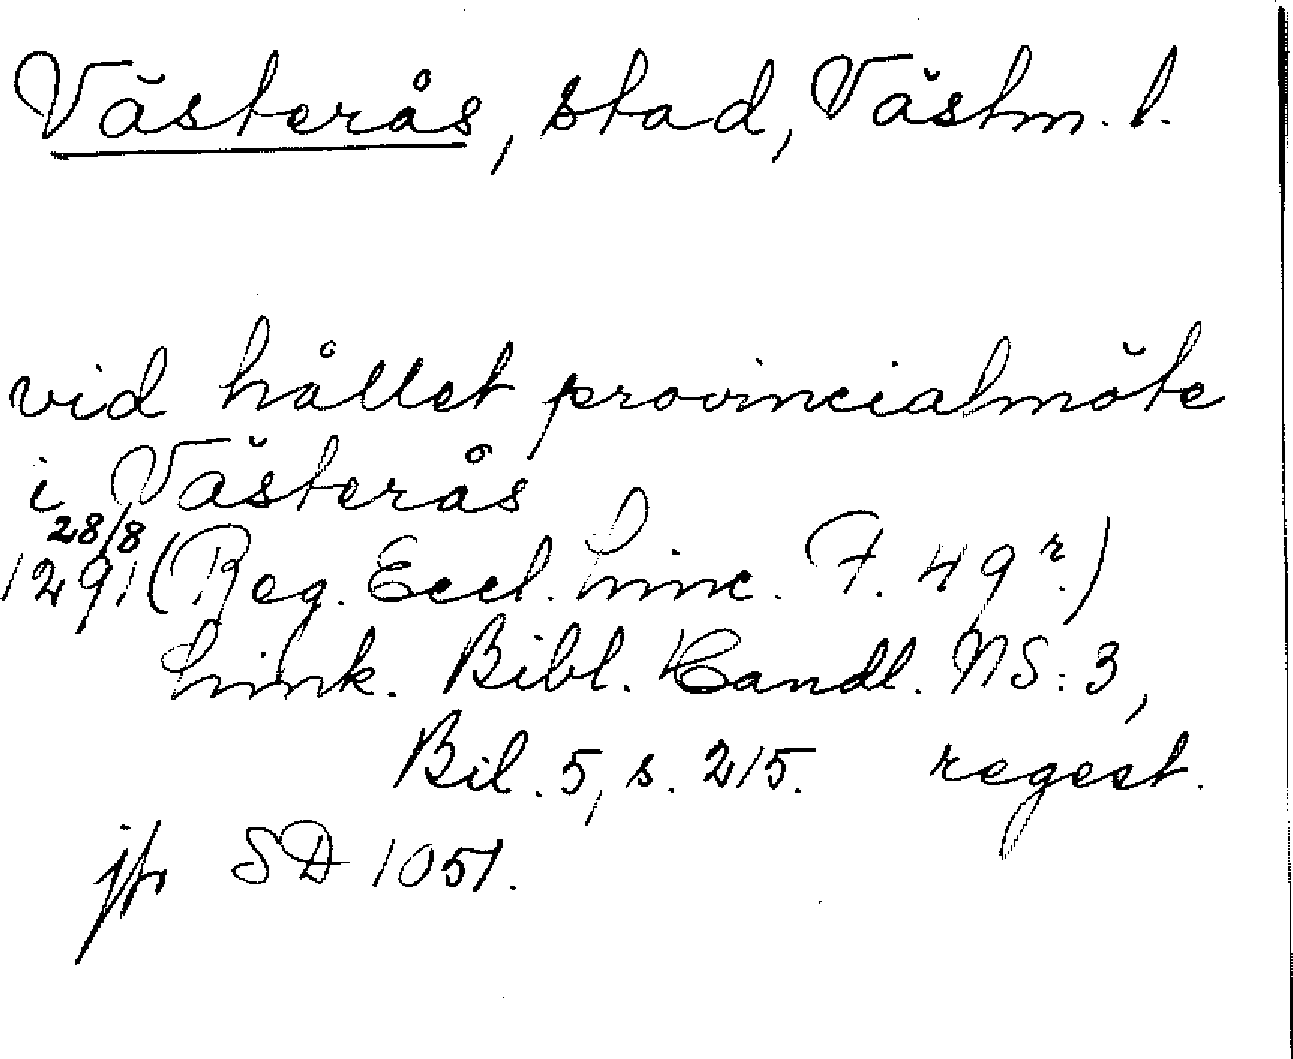 Västerås, stad, Västm. l.
vid hållet provincialmöte
i Västerås
28/8
1291 (Reg. Eccl. Linc. F. 49 r.)
Link. Bibl. Handl. NS: 3,
Bil. 5, s. 215. regest.
jfr SD 1051.